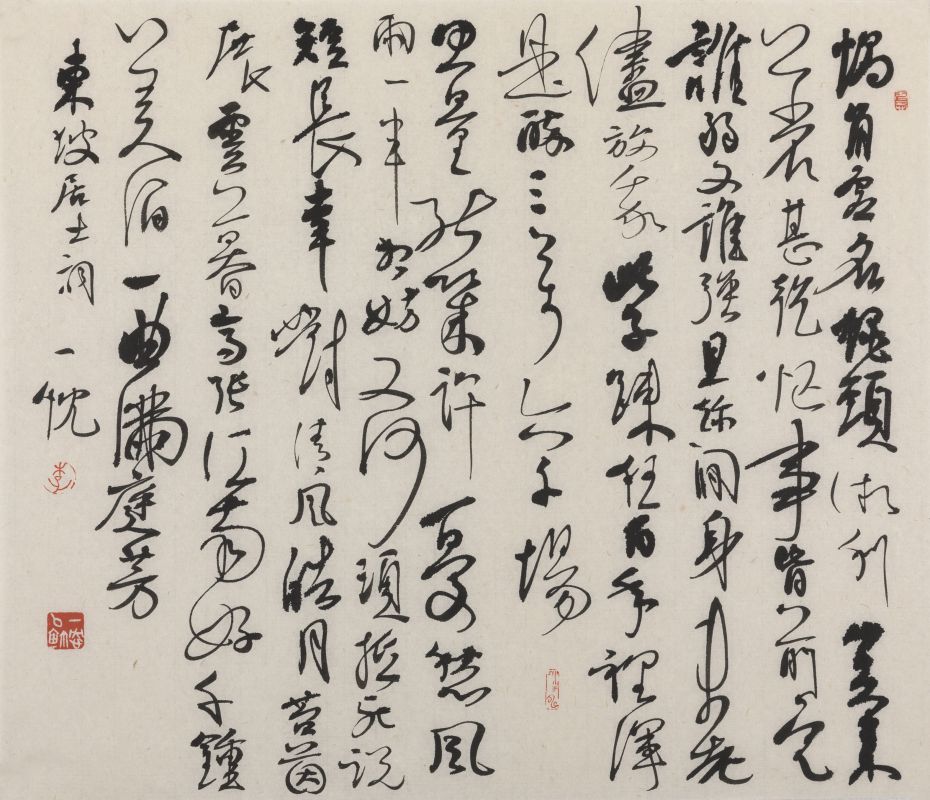 蝸角虛名蠅頭微利算來
著甚乾忙事皆前定
誰弱又誰強且趁閒身未老
儘放我些子疎狂百年裡渾
是醉三万六千場
思量能幾許憂愁風
雨一半相妨又何須抵死說
短長幸對清風皓月苔茵
展雲幕高張江南好千鐘
美酒一曲滿庭芳
東坡居士詞 一
李